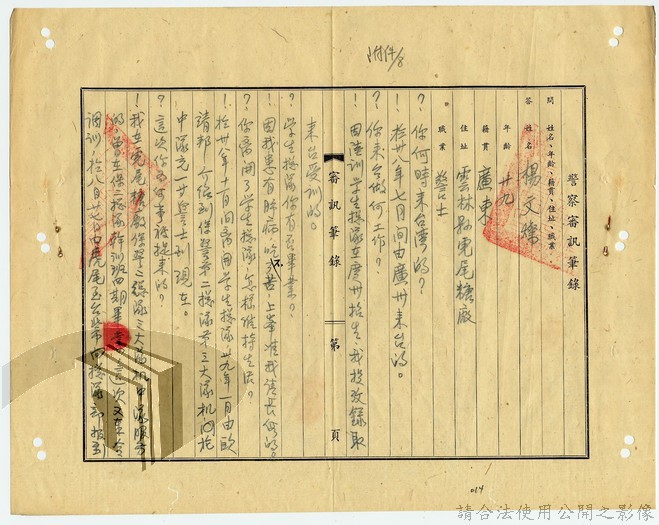 附件8
警察審訊筆錄
問 姓名、年齡、籍貫、住址、職業
答 姓名 楊文
年齡 廿九
籍貫 廣東
住址 雲林縣虎尾糖廠
職業 警士
？你何時來台灣的？
！卅八年七月間由廣州來台的。
？你來台做何工作？
！因陸訓學生總隊在廣州招生，我投效錄取
來台受訓的。
審訊筆錄 第 頁
？學生總隊你有否畢業？
！因我患有肺病吃不苦，上峯准我請長假的。
？你離開了學生總隊怎樣維持生活？
！卅八年十二月間離開學生總隊，卅九年一月由歐
請邦介紹到保警第二總隊第三大隊机
中隊充一廿警士到現在。
？這次你為何事被提來的？
！我在虎尾糖廠保警二總隊三大隊机中隊服務
的，曾在保二總隊幹訓班四期畢業，這次又奉令
調訓，於八月廿七日由虎尾至台北市向總隊部報到
014
請合法使用公開之影像